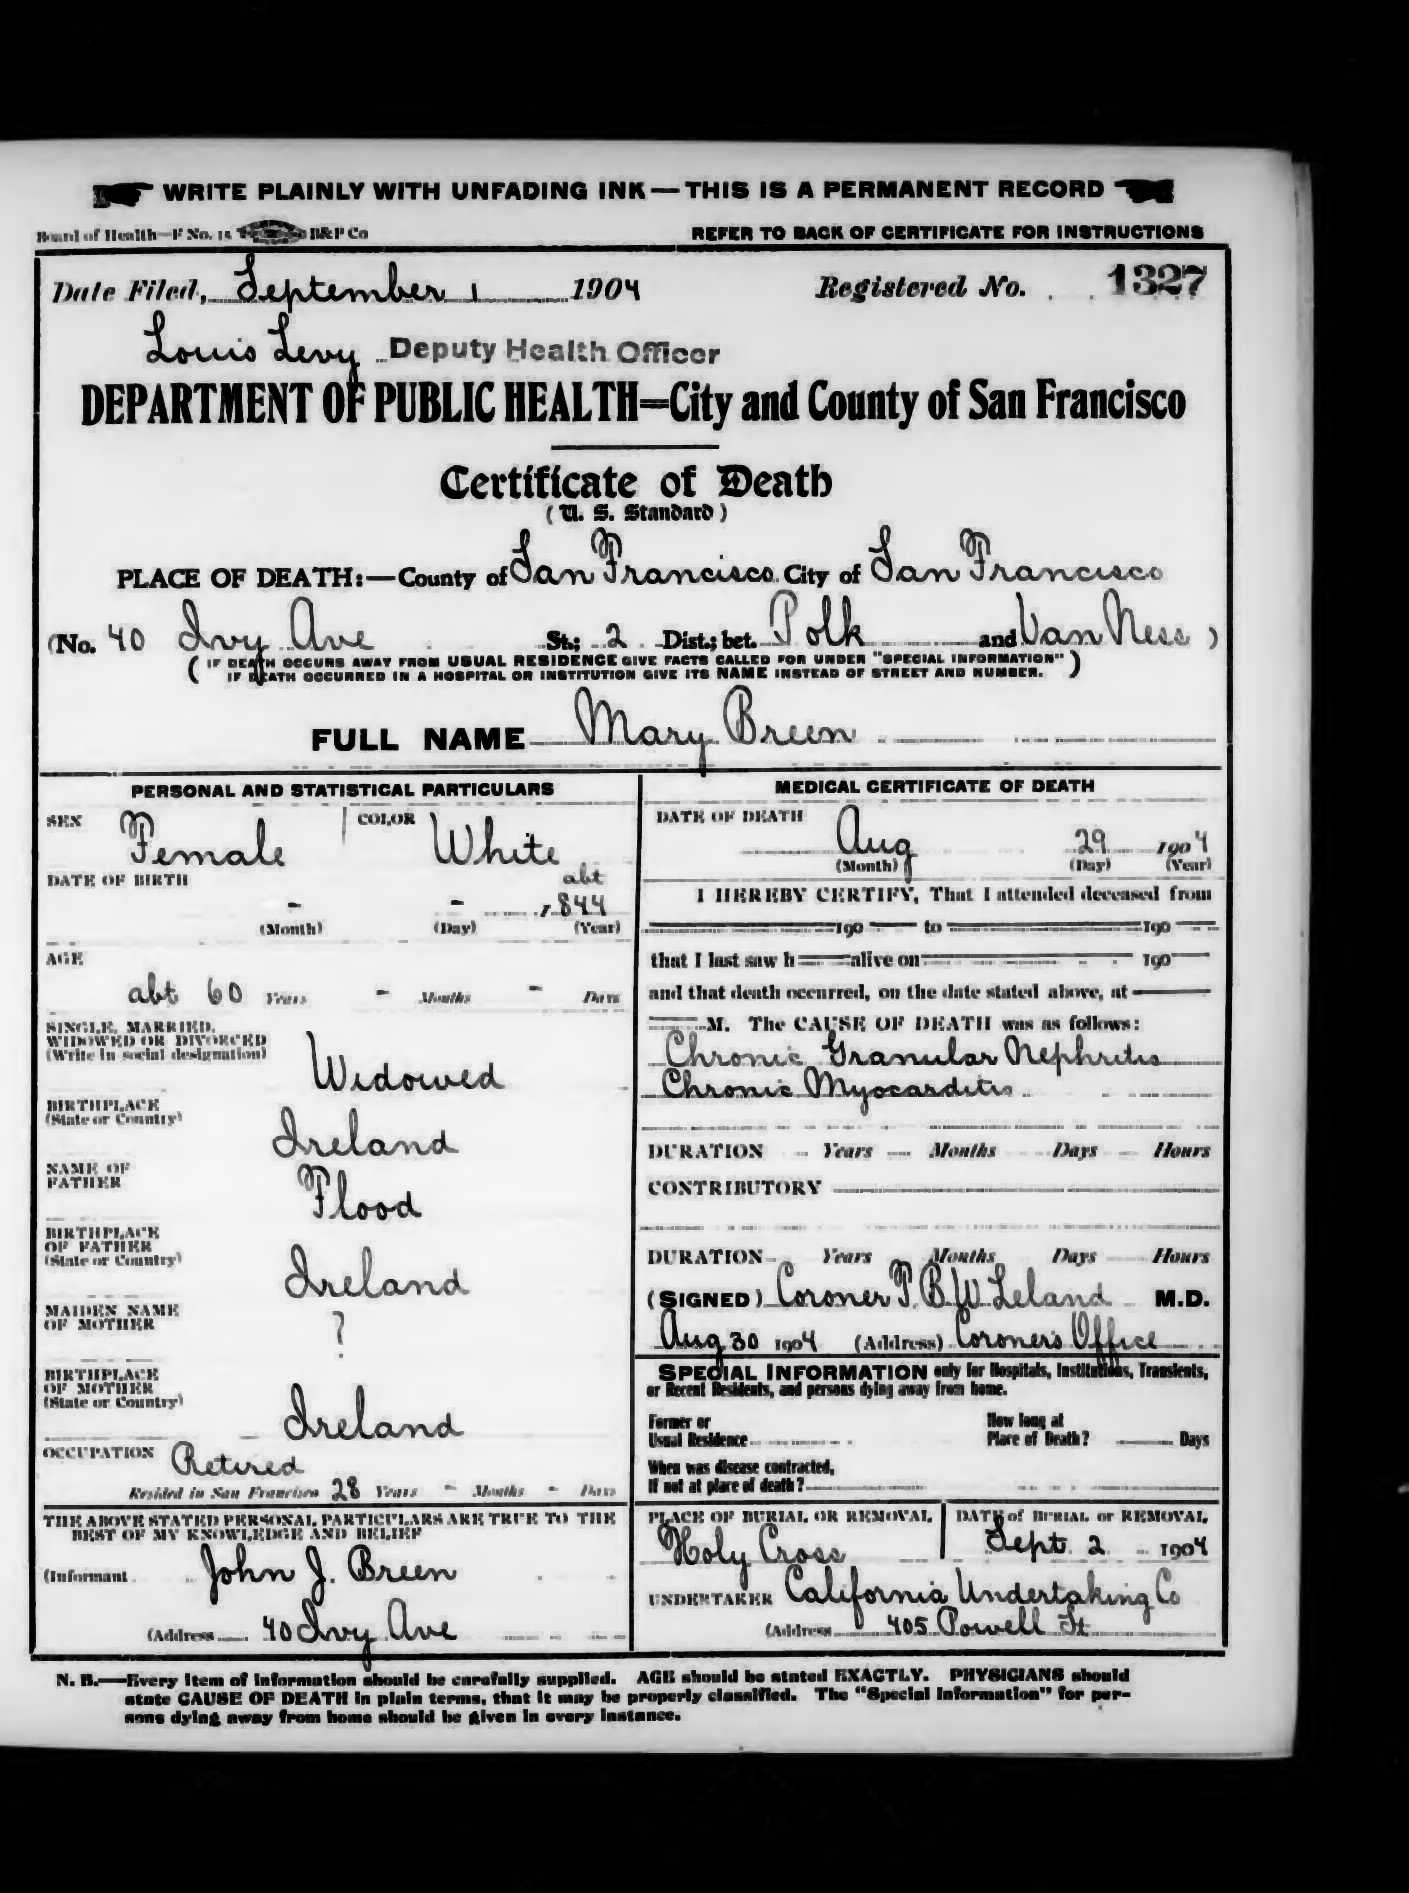 WRITE PLAINLY WITH UNFADING INK — THIS IS A PERMANENT RECORD
Board of Health—F No. 15 B&P Co REFER TO BACK OF CERTIFICATE FOR INSTRUCTIONS
Date Filed, September 1 1904 Registered No. 1327
Louis Levy Deputy Health Officer
DEPARTMENT OF PUBLIC HEALTH=City and County of San Francisco
Certificate of Death
( U. S. Standard )
PLACE OF DEATH:—County of San Francisco City of San Francisco
(No. 40 Ivy Ave St.; 2 Dist.; bet. Polk and Van Ness )
( IF DEATH OCCURS AWAY FROM USUAL RESIDENCE GIVE FACTS CALLED FOR UNDER "SPECIAL INFORMATION" )
IF DEATH OCCURRED IN A HOSPITAL OR INSTITUTION GIVE ITS NAME INSTEAD OF STREET AND NUMBER.
FULL NAME Mary Breen
PERSONAL AND STATISTICAL PARTICULARS
SEX Female COLOR White
DATE OF BIRTH abt
- - 1844
(Month) (Day) (Year)
AGE
abt 60 Years - Months - Days
SINGLE, MARRIED,
WIDOWED OR DIVORCED
(Write in social designation) Widowed
BIRTHPLACE
(State or Country) Ireland
NAME OF
FATHER Flood
BIRTHPLACE
OF FATHER
(State or Country) Ireland
MAIDEN NAME
OF MOTHER ?
BIRTHPLACE
OF MOTHER
(State or Country) Ireland
OCCUPATION Retired
Resided in San Francisco 28 Years - Months - Days
THE ABOVE STATED PERSONAL PARTICULARS ARE TRUE TO THE
BEST OF MY KNOWLEDGE AND BELIEF
(Informant John J. Breen
(Address 40 Ivy Ave
MEDICAL CERTIFICATE OF DEATH
DATE OF DEATH
Aug 29 1904
(Month) (Day) (Year)
I HEREBY CERTIFY, That I attended deceased from
190 to 190
that I last saw h alive on 190
and that death occurred, on the date stated above, at
M. The CAUSE OF DEATH was as follows:
Chronic Granular Nephritis
Chronic Myocarditis
DURATION Years Months Days Hours
CONTRIBUTORY
DURATION Years Months Days Hours
(SIGNED) Coroner T. B. W. Leland M.D.
Aug 30 1904 (Address) Coroner's Office
SPECIAL INFORMATION only for Hospitals, Institutions, Transients,
or Recent Residents, and persons dying away from home.
Former or How long at
Usual Residence Place of Death? Days
When was disease contracted,
If not at place of death?
PLACE OF BURIAL OR REMOVAL DATE of BURIAL or REMOVAL
Holy Cross Sept. 2 1904
UNDERTAKER California Undertaking Co
(Address 405 Powell St
N. B.—Every item of information should be carefully supplied. AGE should be stated EXACTLY. PHYSICIANS should
state CAUSE OF DEATH in plain terms, that it may be properly classified. The "Special Information" for per-
sons dying away from home should be given in every instance.